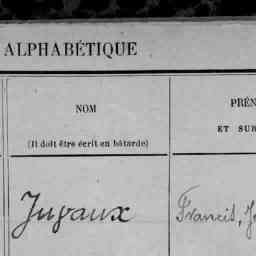 ALPHABÉTIQUE
NOM
PRÉN
(Il doit être écrit en bâtarde)
ET SUR
Jugaux
Francis, J